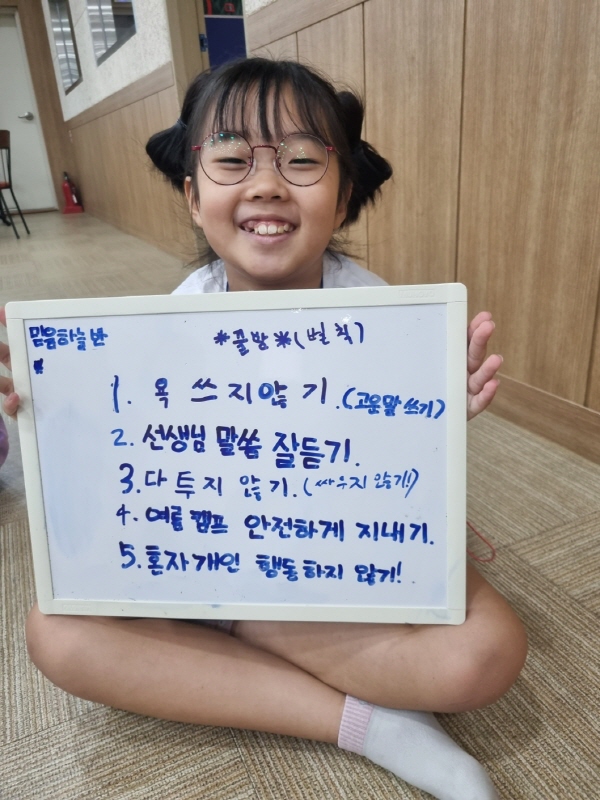 믿음하늘반
*꿀밤*(벌칙)
1. 욕 쓰지않기.(고운말 쓰기)
2. 선생님 말씀 잘듣기.
3. 다투지 않기.(싸우지 않기!)
4. 여름캠프 안전하게 지내기.
5. 혼자개인 행동하지 않기!